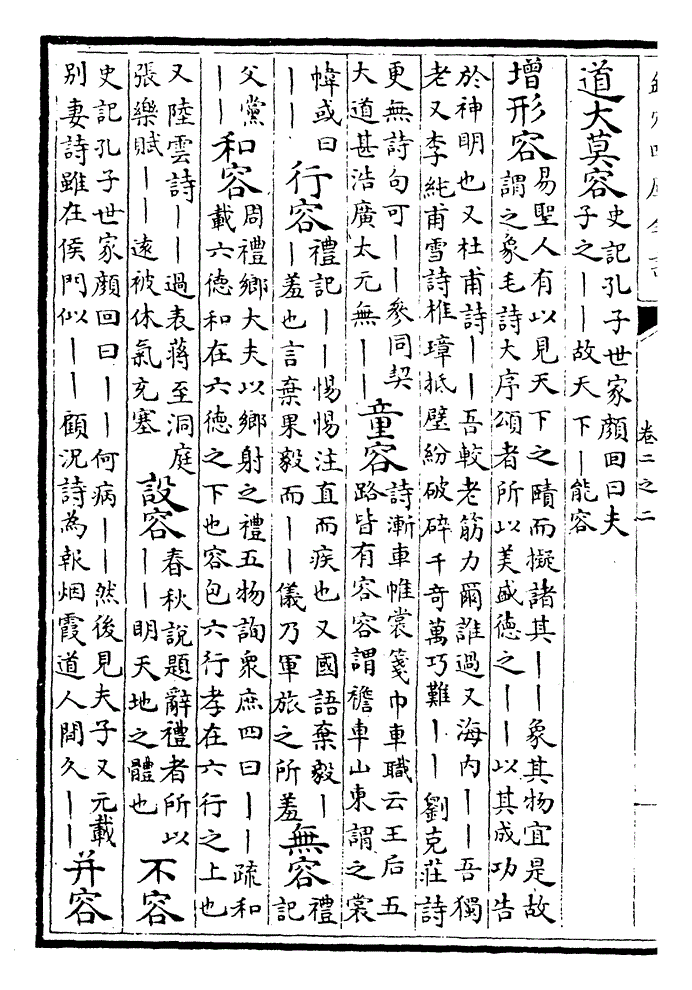 卷二之二
道大莫容
史記孔子世家顔回曰夫
子之丨丨故天下丨能容
增形容
易聖人有以見天下之賾而擬諸其丨丨象其物宜是故
謂之象毛詩大序頌者所以美盛德之丨丨以其成功告
於神明也又杜甫詩丨丨吾較老筋力爾誰過又海内丨丨吾獨
老又李純甫雪詩椎璋抵璧紛破碎千奇萬巧難丨丨劉克莊詩
更無詩句可丨丨參同契
大道甚浩廣太元無丨丨
童容
詩漸車帷裳箋巾車職云王后五
路皆有容容謂襜車山東謂之裳
幃或曰
丨丨
行容
禮記丨丨惕惕注直而疾也又國語棄毅丨
丨羞也言棄果毅而丨丨儀乃軍旅之所羞
無容
禮
記
父黨
丨丨
和容
周禮鄉大夫以鄉射之禮五物詢衆庶四曰丨丨疏和
載六德和在六德之下也容包六行孝在六行之上也
又陸雲詩丨丨過表蔣至洞庭
張樂賦丨丨遠被休氣充塞
設容
春秋說題辭禮者所以
丨丨明天地之體也
不容
史記孔子世家顔回曰丨丨何病丨丨然後見夫子又元載
别妻詩雖在侯門似丨丨顧況詩為報烟霞道人閒久丨丨
并容